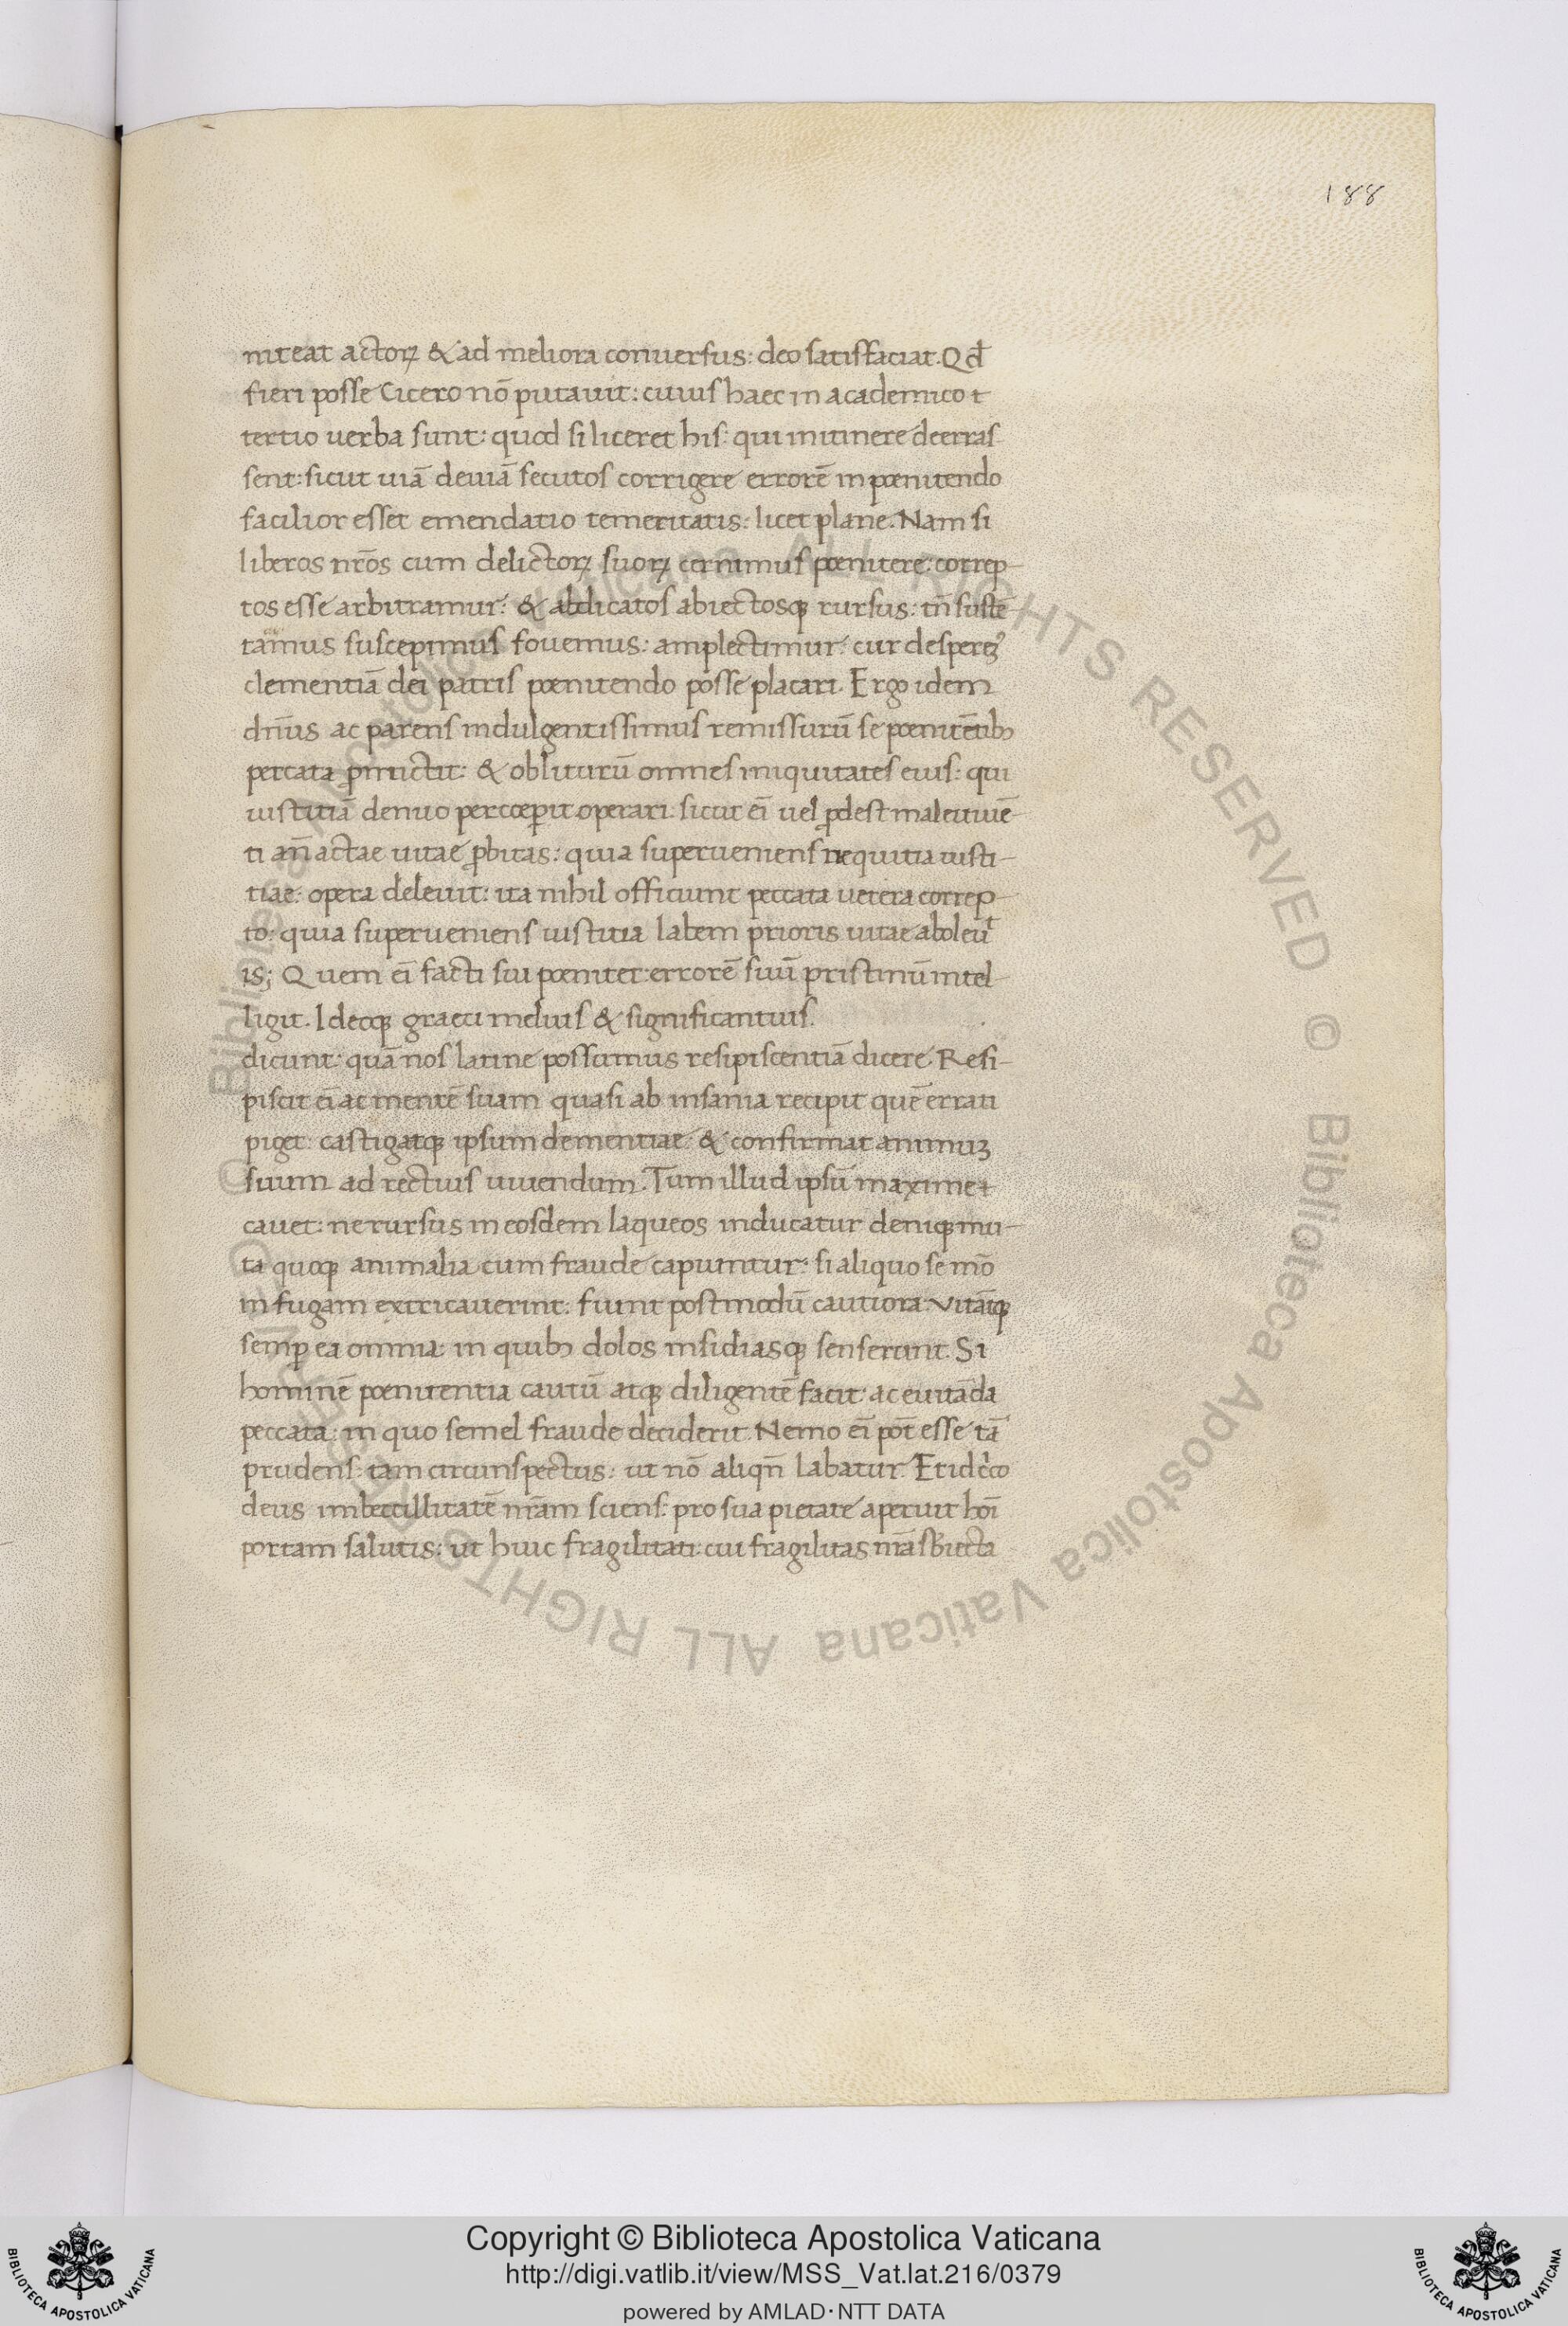 188
niteat actoꝝ & ad meliora conuersus: deo satisfaciat. Qđ
fieri posse Cicero nō putauit: cuius haec in academico t
tertio uerba sunt: quod si liceret his: qui in itinere deerras
sent: sicut uiā deuiā secutos corrigere errorē in poenitendo
facilior esset emendatio temeritatis: licet plane. Nam si
liberos nr̄os cum delictoꝝ suoꝝ cernimus poenitere: correp-
tos esse arbitramur: & abdicatos abiectosqꝫ rursus: tn̄ sustē-
tamus suscepimus fouemus: amplectimur: cur desperemꝰ
clementiā dei patris poenitendo posse placari. Ergo idem
dn̄us ac parens indulgentissimus remissurū se poenitētibꝫ
percata ꝓmictit: & obliturū omnes iniquitates eius: qui
iustitiā denuo percoeꝑit operari. sicut ei̅ uel ꝓdest male uiuē-
ti an̄ actae uitae ꝓbitas: quia superueniens nequitia iusti-
tiae: opera deleuit: ita nihil officiunt peccata uetera correp-
to: quia superueniens iustitia labem prioris uitae aboleuᵗ
is; Quem ei̅ facti sui poenitet: errorē suū pristinū intel-
ligit. Ideoqꝫ graeci melius & significantius.
dicunt: quā nos latine possumus resipiscentiā dicere. Resi-
piscit ei̅ ac mentē suam quasi ab insania recipit quē errati
piget: castigatqꝫ ipsum dementiae: & confirmat animuꝫ
suum ad rectius uiuendum. Tum illud ipsū maxime t
cauet: ne rursus in eosdem laqueos inducatur deniqꝫ mu-
ta quoqꝫ animalia cum fraude capiuntur: si aliquo se mō
in fugam extricauerint: fiunt postmodū cautiora: Vitātqꝫ
semꝑ ea omnia: in quibꝫ dolos insidiasqꝫ senserunt. Si
hominē poenitentia cautū atqꝫ diligentē facit: ac euitāda
peccata: in quo semel fraude deciderit. Nemo ei̅ pōt esse tā
prudens: tam circunspectus: ut nō aliqn̄ labatur. Et idcͥco
deus imbecillitatē nr̄am sciens: pro sua pietate aperuit hoī
portam salutis: ut huic fragilitati: cui fragilitas nr̄a sƀiecta
Copyright © Biblioteca Apostolica Vaticana
http://digi.vatlib.it/view/MSS_Vat.lat.216/0379
powered by AMLAD·NTT DATA